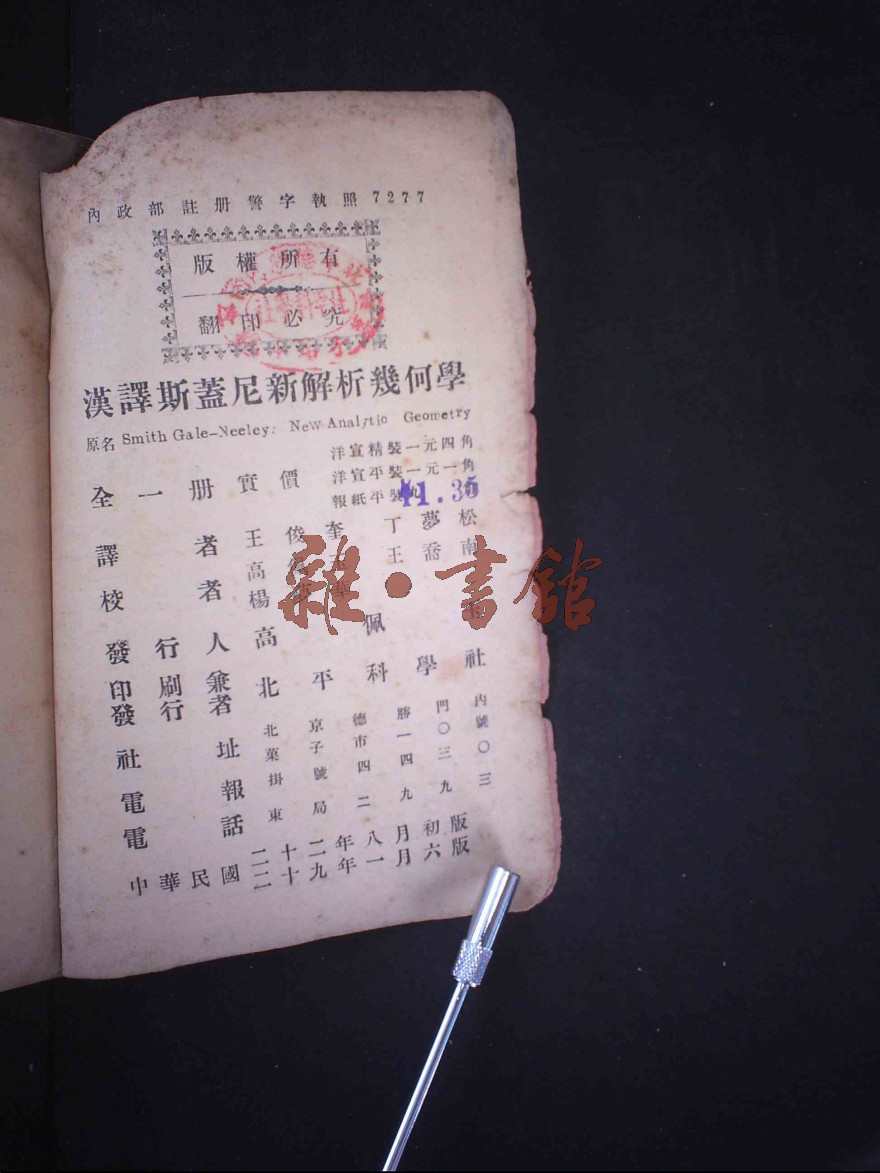 內政部註册警字執照7277
版權所有
翻印必究
漢譯斯蓋尼新解析幾何學
原名 Smith Gale-Neeley: New Analytic Geometry
全一册實價
洋宣精裝一元四角
洋宣平裝一元一角
報紙平裝九
1.35
譯者 王俊奎 丁夢松
高 王喬南
校者 楊
發行人 高佩
印刷兼發行者 北平科學社
社址 北京德勝門內
菓子市一〇號
電報 掛號四四三〇
電話 東局二九九三
中華民國二十二年八月初版
二十九年一月六版
雜·書館